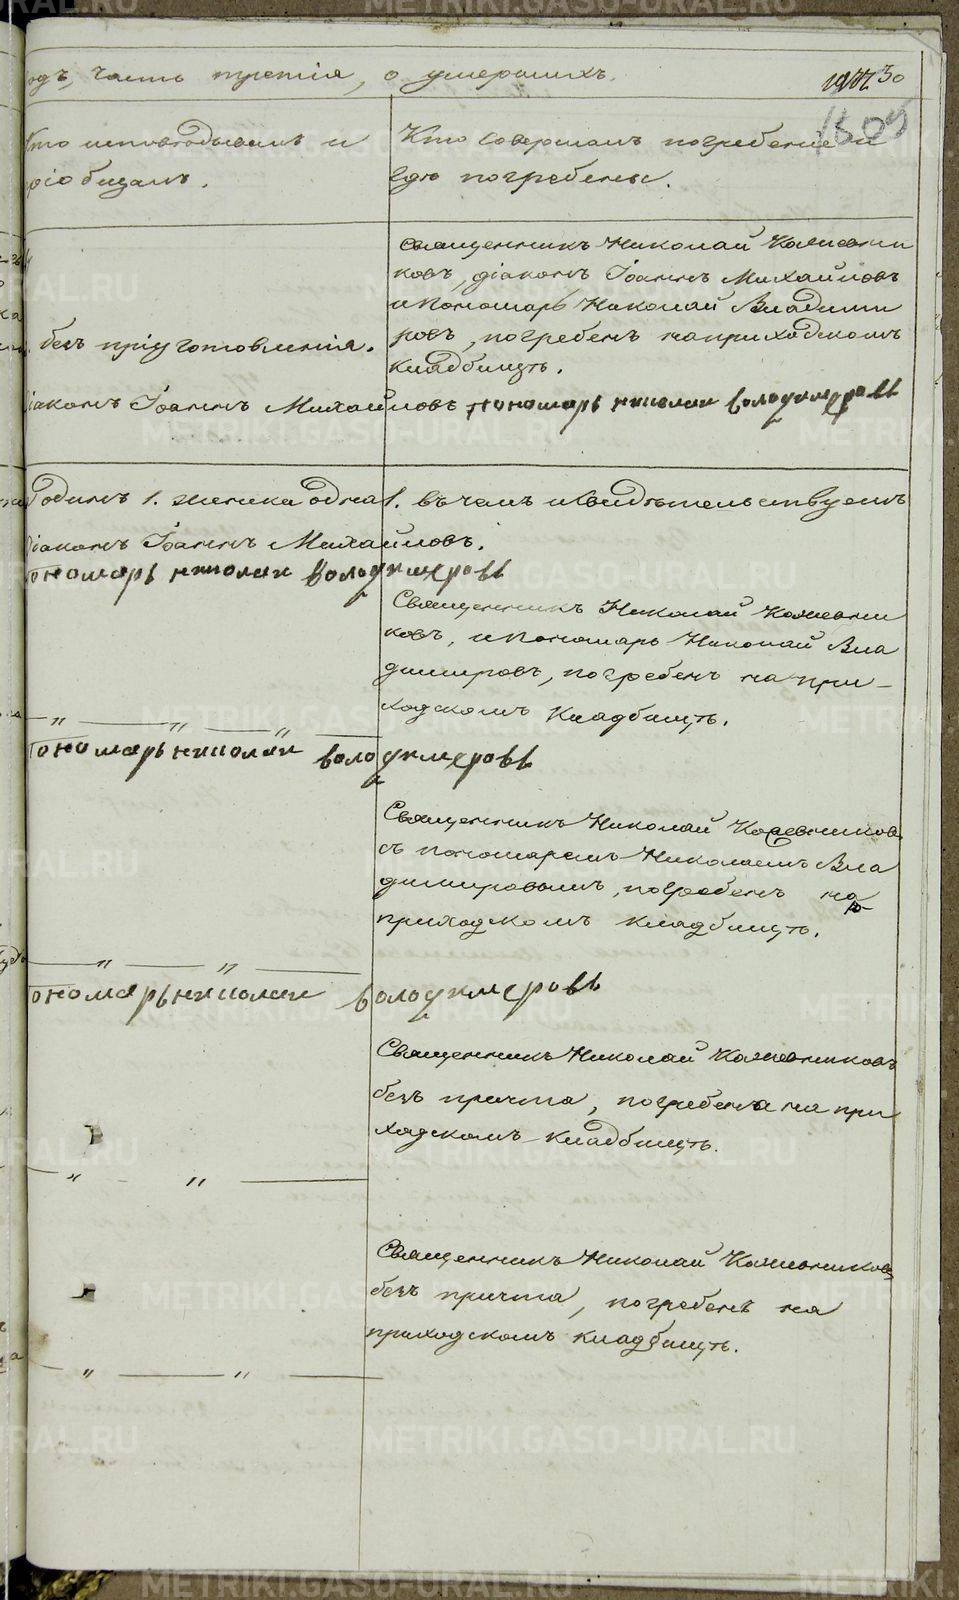 одъ, часть третія, о умершихъ.
30
1509
Кто исповѣдывалъ и
пріобщалъ.
Кто совершалъ погребеніе и
гдѣ погребены.
Священникъ Николай Кожевни
ковъ, діаконъ Іоаннъ Михайловъ
и Пономарь Николай Влади­ми
ровъ, погребенъ на приходскомъ
кладбищѣ.
безъ пріуготовленія.
діаконъ Іоаннъ Михайловъ пономарь николаи володимеровъ
Родинъ 1. женска одна 1. въ чемъ и свидѣтельствуемъ
діаконъ Іоаннъ Михайловъ.
пономарь николаи володимеровъ
Священникъ Николай Кожевни
ковъ, и Пономарь Николай Вла
димировъ, погребенъ на при-
ходскомъ кладбищѣ.
пономарь николаи володимеровъ
Священникъ Николай Кожевниковъ
съ пономаремъ Николаемъ Вла
димировымъ, погребенъ на
приходскомъ кладбищѣ.
пономарь николаи володимеровъ
Священникъ Николай Кожевниковъ
безъ причта, погребена на при
ходскомъ кладбищѣ.
Священникъ Николай Кожевниковъ
безъ причта, погребенъ на
приходскомъ кладбищѣ.
METRIKI.GASO-URAL.RU